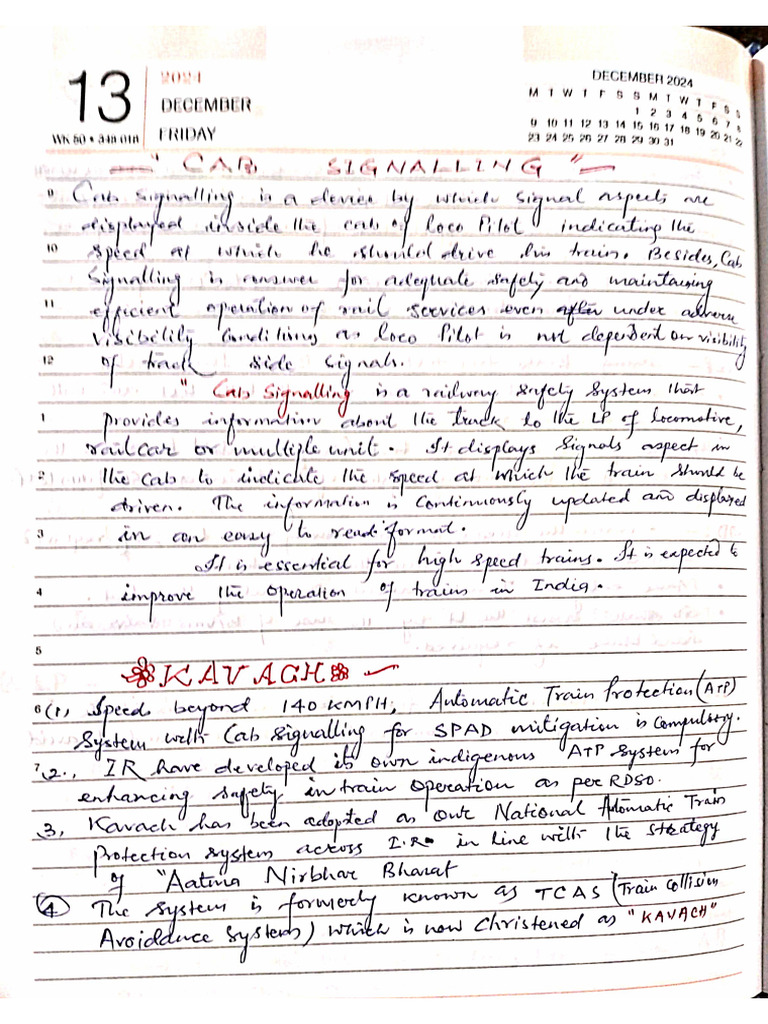 13
2024
DECEMBER
FRIDAY
WK 50 • 348-018
DECEMBER 2024
M T W T F S S M T W T F S S
1 2 3 4 5 6 7 8
9 10 11 12 13 14 15 16 17 18 19 20 21 22
23 24 25 26 27 28 29 30 31
" CAB SIGNALLING "
9 Cab Signalling is a device by which signal aspects are
displayed inside the cab of Loco Pilot indicating the
10 speed at which he should drive his train. Besides, Cab
Signalling is answer for adequate safety and maintaining
11 efficient operation of rail services even after under adverse
visibility conditions as Loco Pilot is not dependent on visibility
12 of track side signals.
" Cab Signalling is a railway safety system that
1 provides information about the track to the LP of locomotive,
railcar or multiple unit. It displays signals aspect in
2 the cab to indicate the speed at which the train should be
driven. The information is continuously updated and displayed
3 in an easy to read format.
It is essential for high speed trains. It is expected to
4 improve the operation of trains in India.
5
KAVACH
6 (1) Speeds beyond 140 KMPH, Automatic Train Protection (ATP)
System with Cab Signalling for SPAD mitigation is compulsory.
7 2., IR have developed its own indigenous ATP system for
enhancing safety in train operation as per RDSO.
3, Kavach has been adopted as our National Automatic Train
Protection system across I.R. in line with the strategy
of "Aatma Nirbhar Bharat
4 The system is formerly known as TCAS (Train Collision
Avoidance System) which is now christened as "KAVACH"